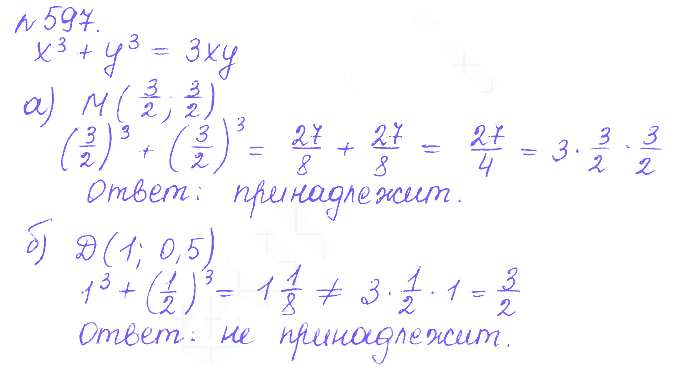 №597.
x³ + y³ = 3xy
а) М(3/2; 3/2)
(3/2)³ + (3/2)³ = 27/8 + 27/8 = 27/4 = 3 · 3/2 · 3/2
Ответ: принадлежит.
б) Д(1; 0,5)
1³ + (1/2)³ = 1 1/8 ≠ 3 · 1/2 · 1 = 3/2
Ответ: не принадлежит.